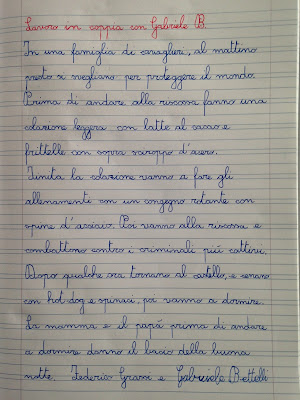 Lavoro in coppia con Gabriele B.
In una famiglia di cavaglieri, al mattino
presto si svegliano per proteggere il mondo.
Prima di andare alla riscossa fanno una
colazione leggera con latte al cacao e
frittelle con sopra sciroppo d'acero.
Finita la colazione vanno a fare gli
allenamenti con un congegno rotante con
spine d'acciaio. Poi vanno alla riscossa e
combattono contro i criminali più cattivi.
Dopo qualche ora tornano al castello, e cenano
con hot-dog e spinaci, poi vanno a dormire.
La mamma e il papà prima di andare
a dormire danno il bacio della buona
notte. Federico Grassi e Gabriele Bettelli